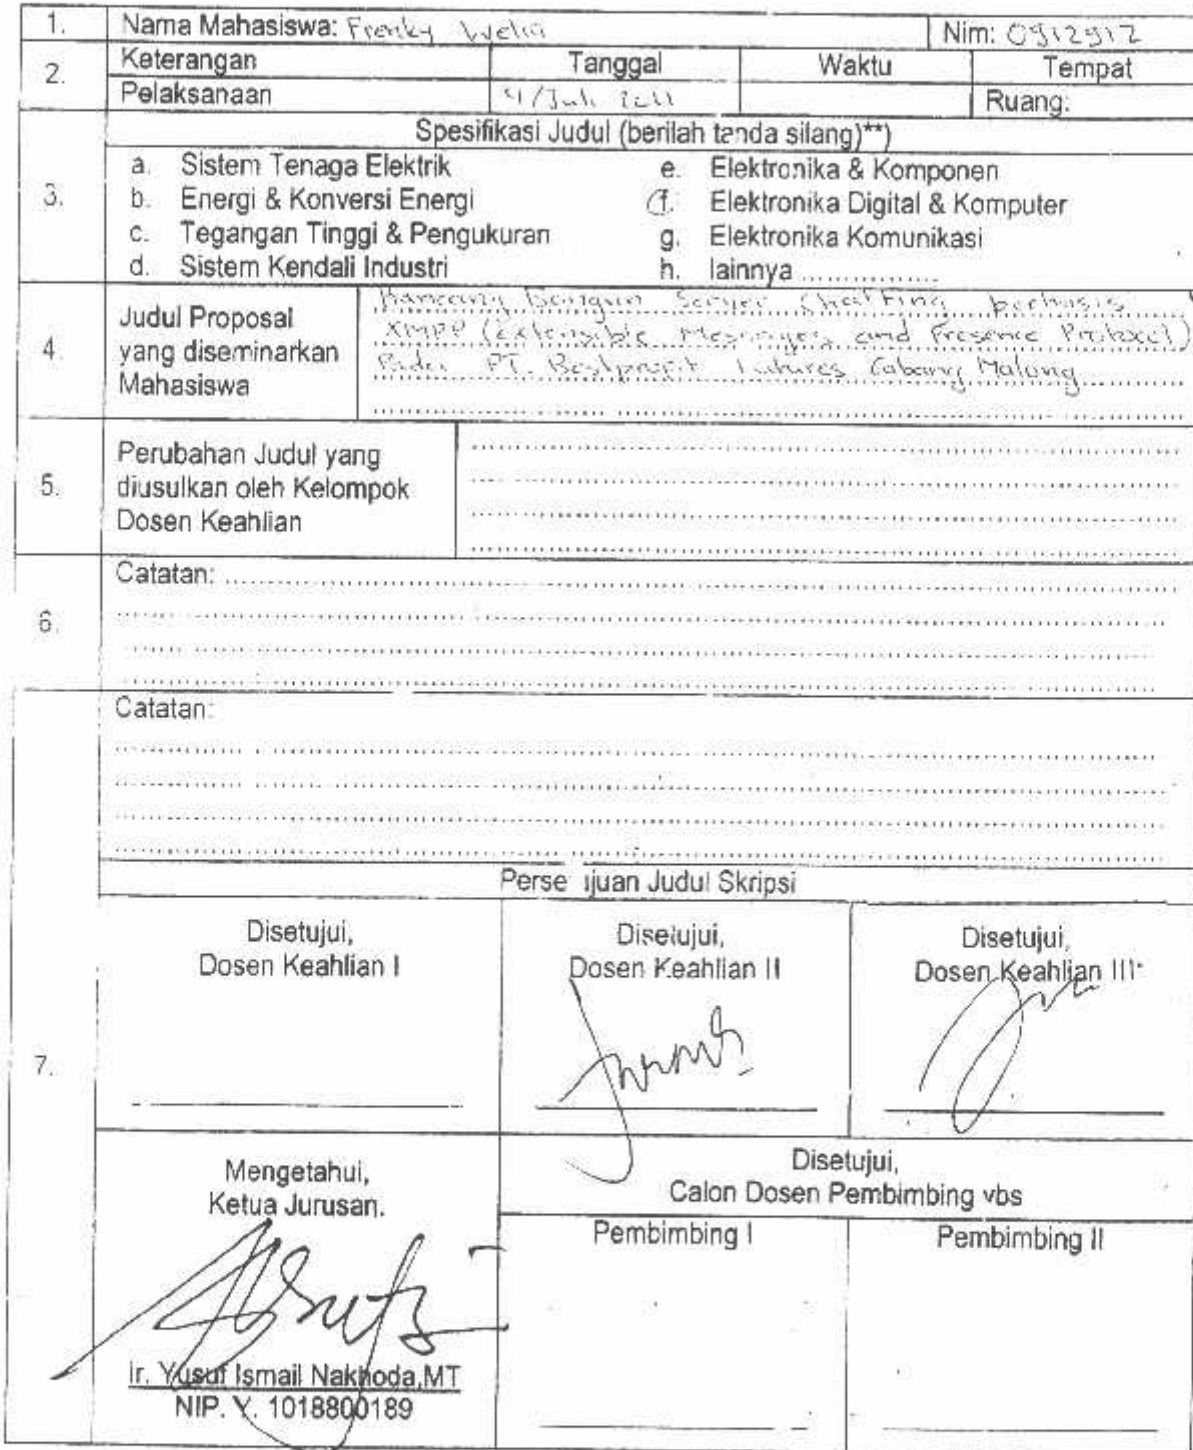 1. Nama Mahasiswa: Frenky Nim: 0912912
2. Keterangan Tanggal Waktu Tempat
Pelaksanaan 4/Juli 2011 Ruang:
3. Spesifikasi Judul (berilah tanda silang)**)
a. Sistem Tenaga Elektrik
b. Energi & Konversi Energi
c. Tegangan Tinggi & Pengukuran
d. Sistem Kendali Industri
e. Elektronika & Komponen
f. Elektronika Digital & Komputer
g. Elektronika Komunikasi
h. lainnya ..................
4. Judul Proposal
yang diseminarkan
Mahasiswa
Rancang Bangun Server Chatting berbasis
XMPP (Extensible Messanges and Presence Protocol)
Pada PT. Bestprofit Futures Cabang Malang
5. Perubahan Judul yang
diusulkan oleh Kelompok
Dosen Keahlian
6. Catatan:
Catatan:
7. Perse ujuan Judul Skripsi
Disetujui,
Dosen Keahlian I
Disetujui,
Dosen Keahlian II
Disetujui,
Dosen Keahlian III
Mengetahui,
Ketua Jurusan.
Ir. Yusuf Ismail Nakhoda,MT
NIP. Y. 1018800189
Disetujui,
Calon Dosen Pembimbing ybs
Pembimbing I
Pembimbing II